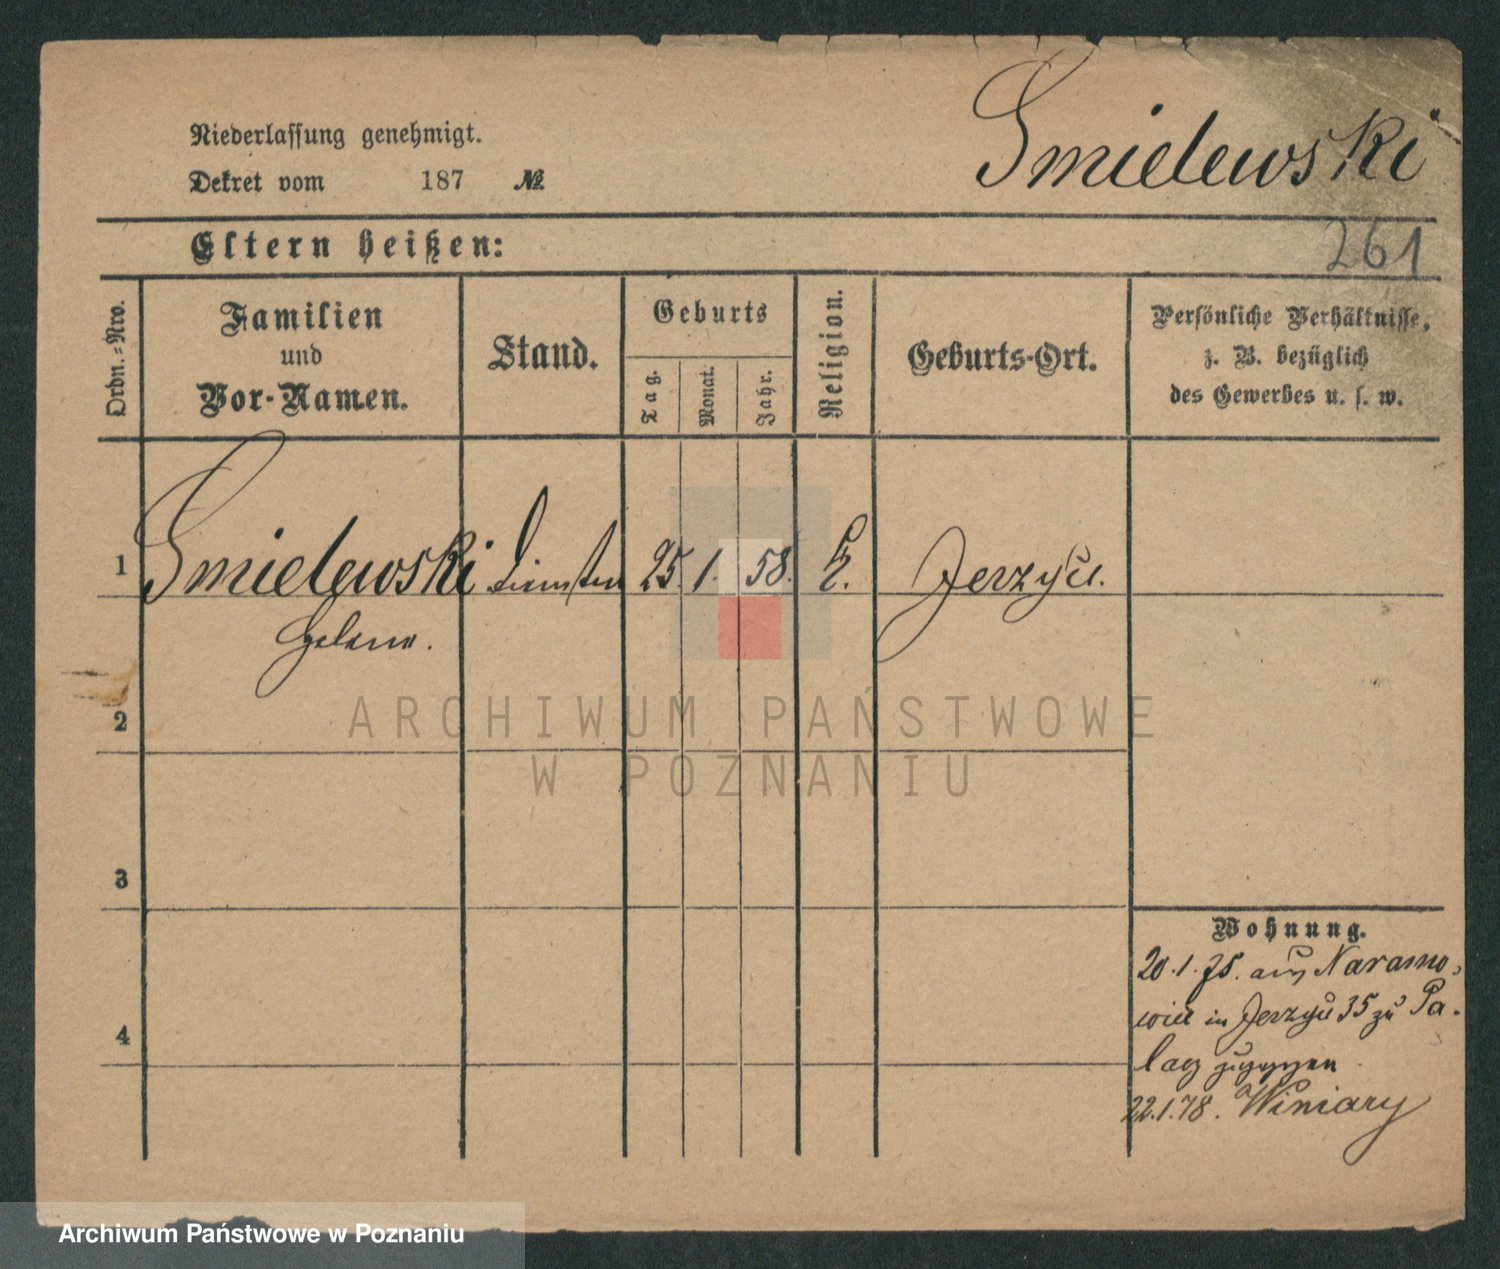 Smielewski
Niederlassung genehmigt.
Dekret vom 187 №
Eltern heißen:
261
Ordn.-Nro.
Familien
und
Vor-Namen.
Stand.
Geburts
Tag.
Monat.
Jahr.
Religion.
Geburts-Ort.
Persönliche Verhältnisse,
z. B. bezüglich
des Gewerbes u. s. w.
1 Smielewski 25. 1. 58. Jerzyü.
Helene.
2
ARCHIWUM PAŃSTWOWE
W POZNANIU
3
4
Wohnung.
20.1.75. aus Naramo-
wice in Jerzyü 35 zu Pa-
lacz zugezogen
22.1.78. Winiary
Archiwum Państwowe w Poznaniu